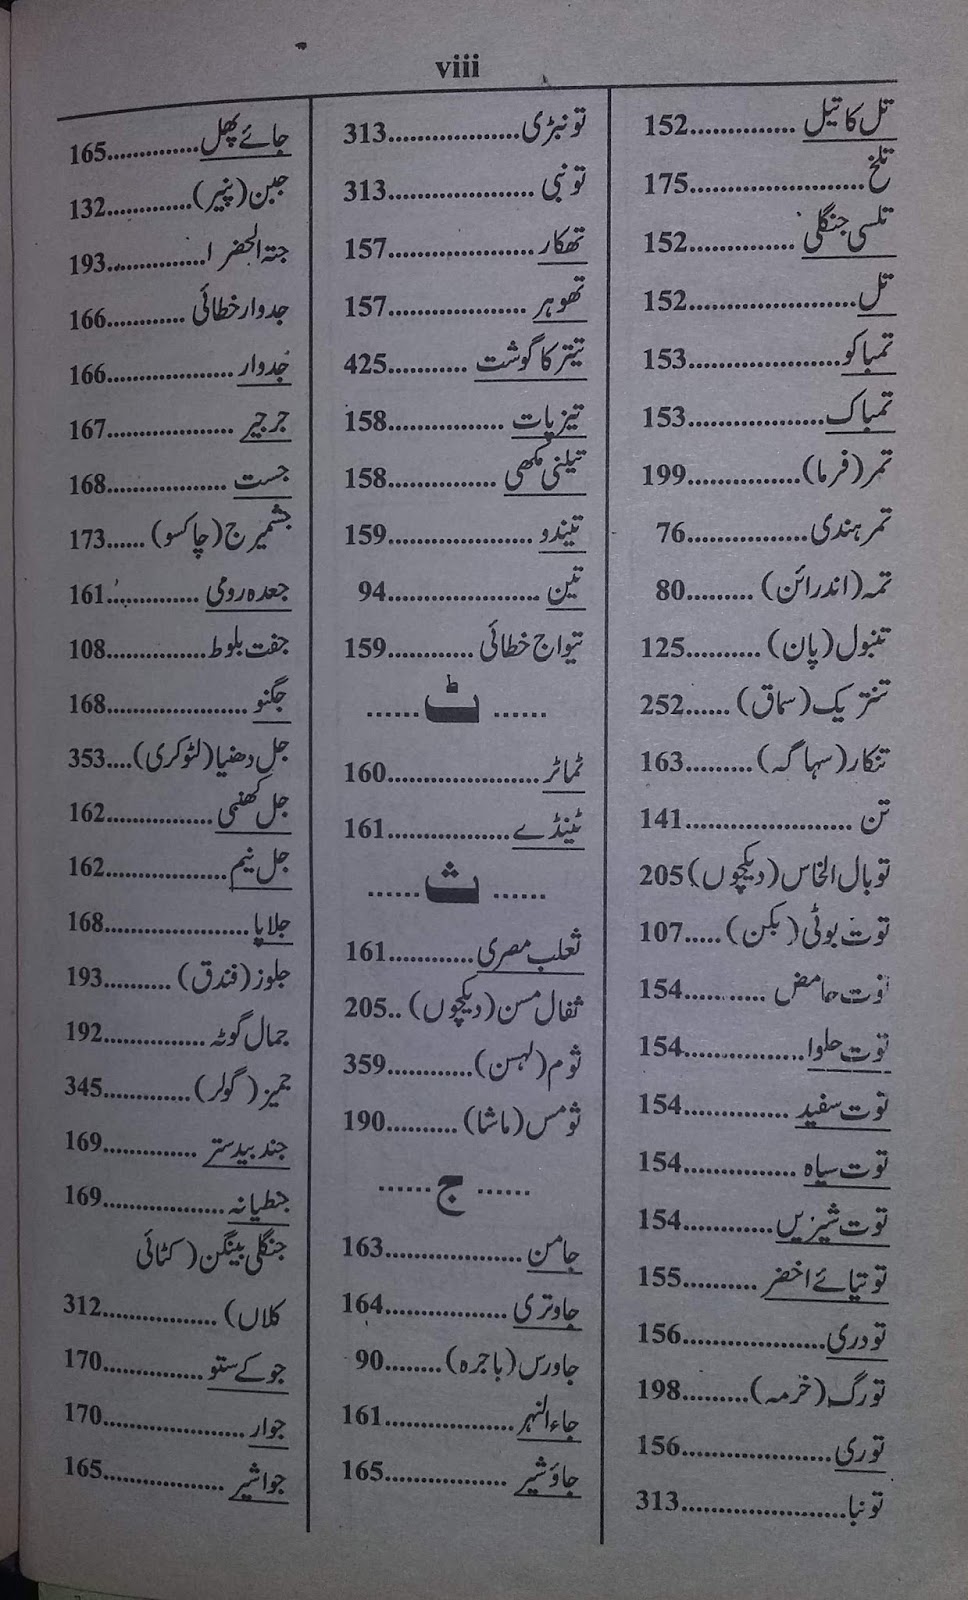 viii
تل کا تیل ..............152
تلخ ........................175
تلسی جنگلی ..............152
تل........................152
تمباکو....................153
تمباک....................153
تمر (فرما)................199
تمر ہندی................76
تمہ (اندرائن) .........80
تنبول (پان) ..........125
تنتریک (سماق) ......252
تنکار (سہاگہ) .........163
تن ......................141
توبال الخاس (دیکچوں)205
توت بوٹی (بکن) .....107
توت حامض ...........154
توت حلوا................154
توت سفید ...............154
توت سیاہ ................154
توت شیریں............154
توتیائے اخضر ..........155
تودری....................156
تورگ (خرمہ).........198
توری ....................156
تونبا......................313
تونبڑی..................313
تونبی ..................313
تھکار ....................157
تھوہر ....................157
تیتر کا گوشت ...........425
تیزپات ..................158
تیلنی مکھی ..............158
تیندو ....................159
تین ......................94
تیواج خطائی ............159
...... ٹ ......
ٹماٹر ....................160
ٹینڈے..................161
...... ث ......
ثعلب مصری ............161
ثفال مسن (دیکچوں) ..205
ثوم (لہسن)............359
ثومس (ماشا) ..........190
...... ج ......
جامن ....................163
جاوتری ................164
جاورس (باجرہ) .......90
جاء النہر ................161
جاؤشیر ..................165
جائے پھل..............165
جبن (پنیر)............132
جتہ الخضرا..............193
جدوار خطائی ............166
جدوار ..................166
جرجیر ..................167
جست ..................168
جشمیرج (چاکسو) ......173
جعدہ رومی ..............161
جفت بلوط..............108
جگنو ....................168
جل دھنیا (لٹوکری)....353
جل کھنبی ..............162
جل نیم..................162
جلاپا....................168
جلوز (فندق) ..........193
جمال گوٹہ ..............192
جمیز (گولر) ............345
جند بیدستر ..............169
جنطیانہ..................169
جنگلی بینگن (کٹائی
کلاں) ..................312
جو کے ستو..............170
جوار ....................170
جواشیر ..................165